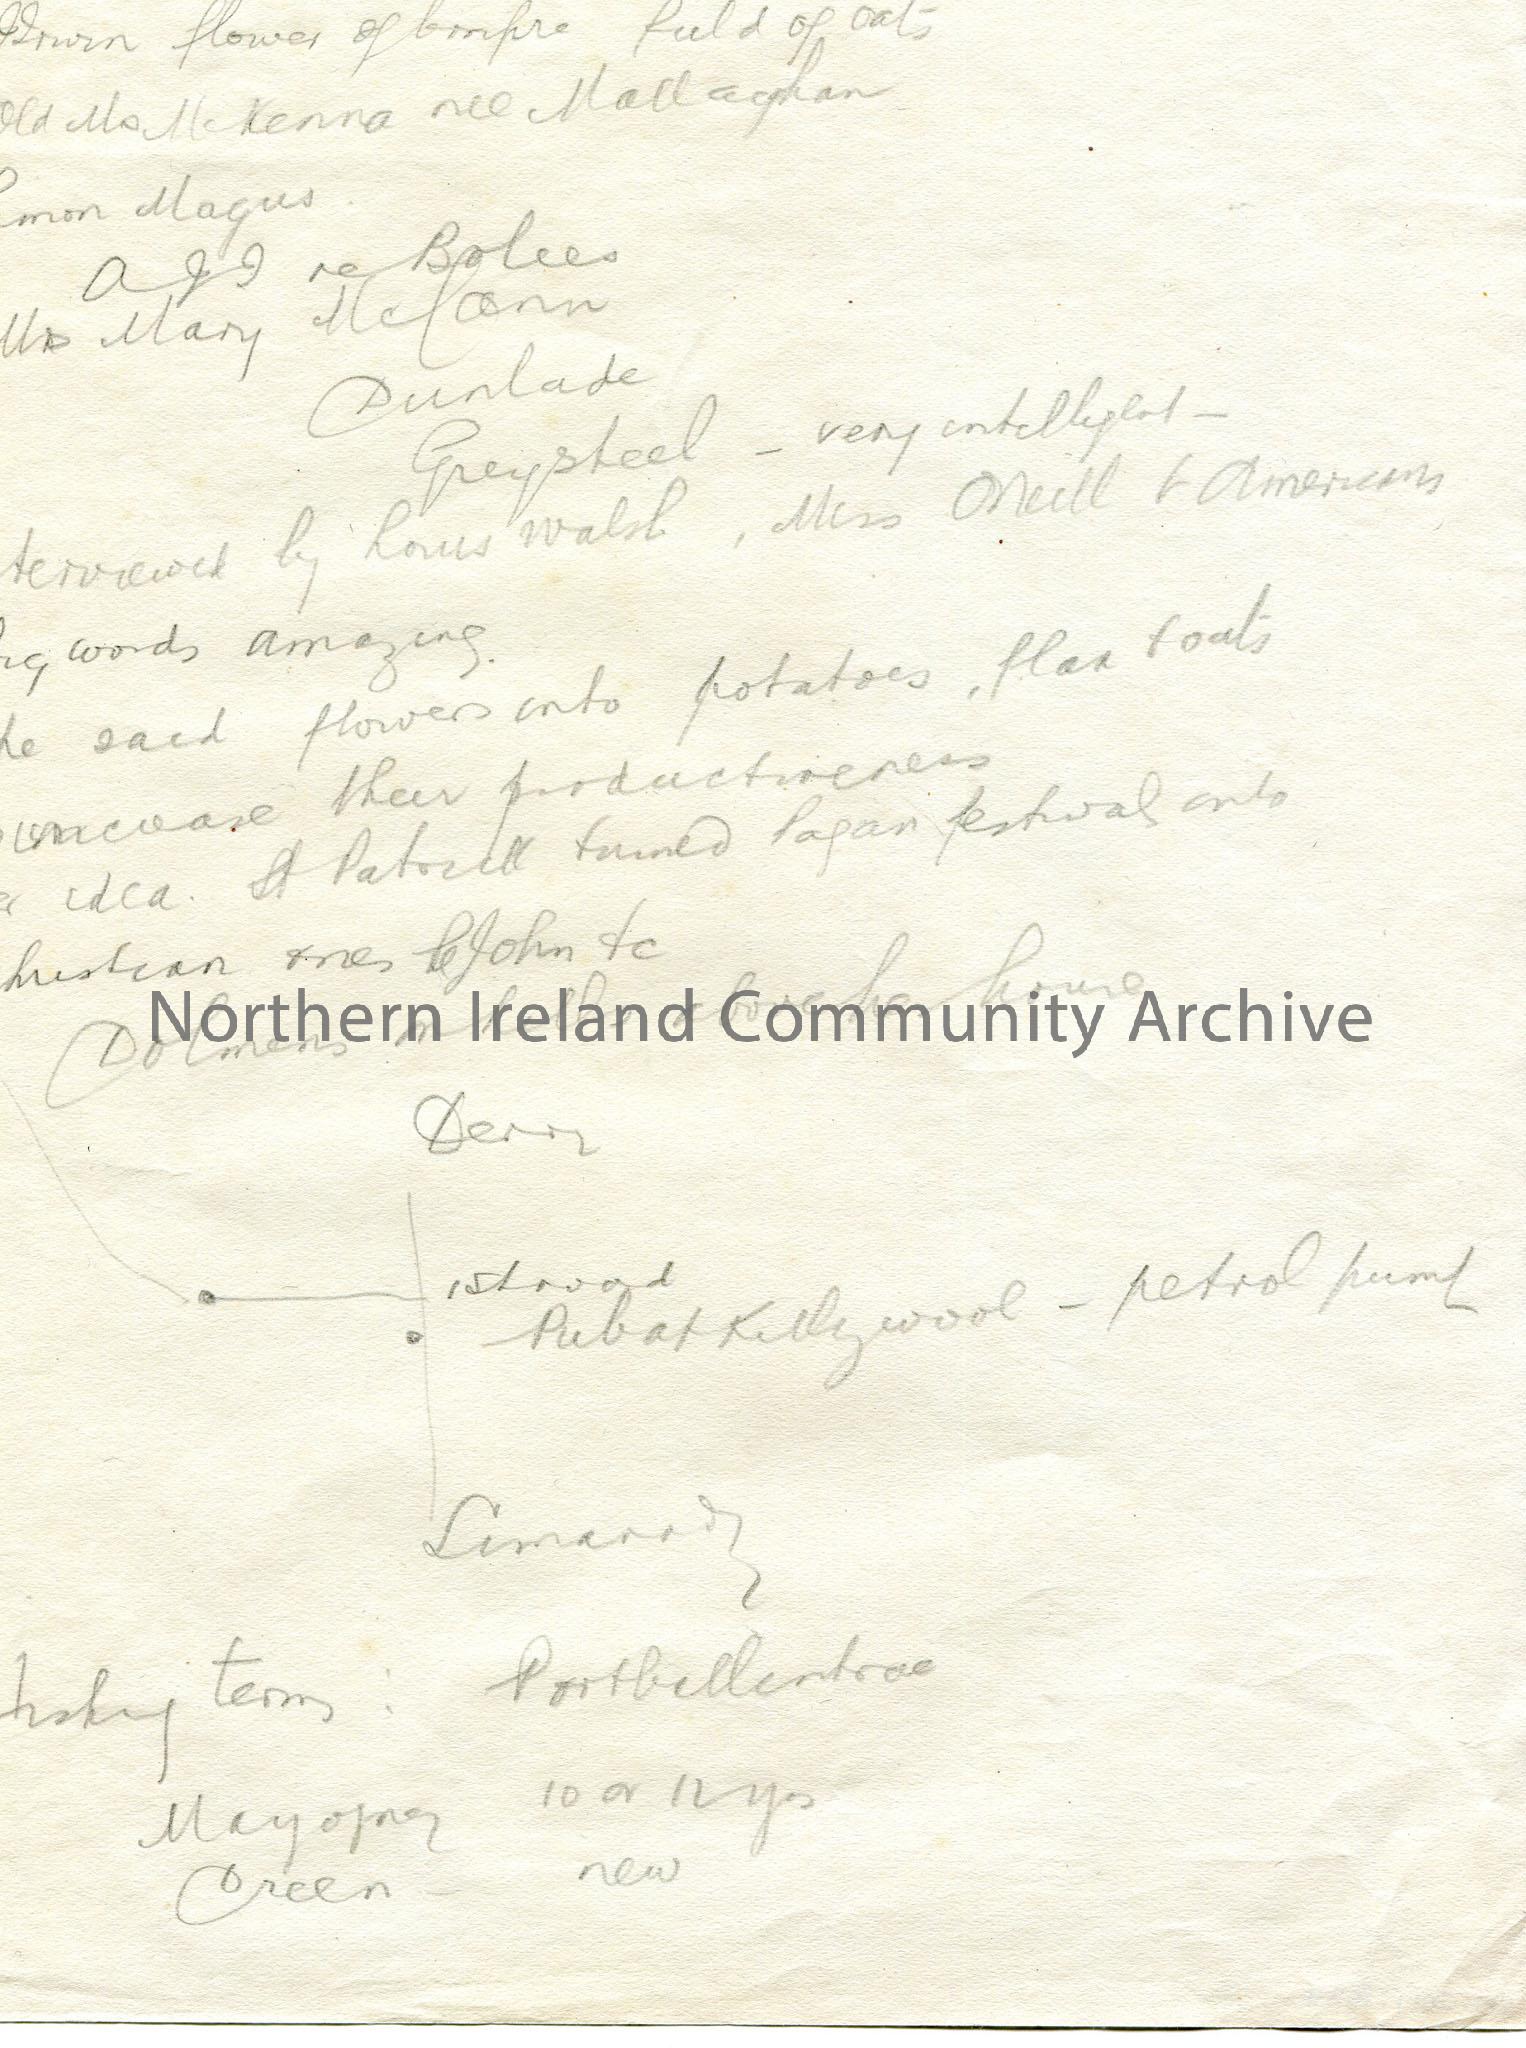 flower of bonfire field of oats
Old Mrs McKenna nee Mallaghan
imon Magus.
re Bolees
Mrs Mary McCann
Dunlade
Greysteel – very intelligent –
terviewed by Louis Walsh, Miss O'Neill & Americans
words amazing.
he said flowers into potatoes, flax & oats
increase their productiveness
er idea. St Patrick turned Pagan festivals into
hristian ones St John &c
Dolmens in hills above her house
Northern Ireland Community Archive
Derry
1st road
Pub at Killywool – petrol pump
Limavady
ishing terms : Portballintrae
May 10 or 12 yrs
Dreen – new